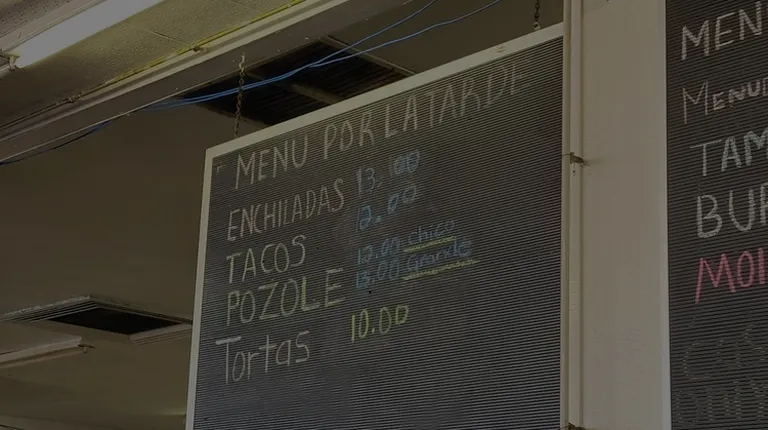 MENU POR LA TARDE
ENCHILADAS 13.00
TACOS 12.00
POZOLE 12.00 chico
13.00 Grande
Tortas 10.00
MEN
MENUD
TAM
BUR
MOL